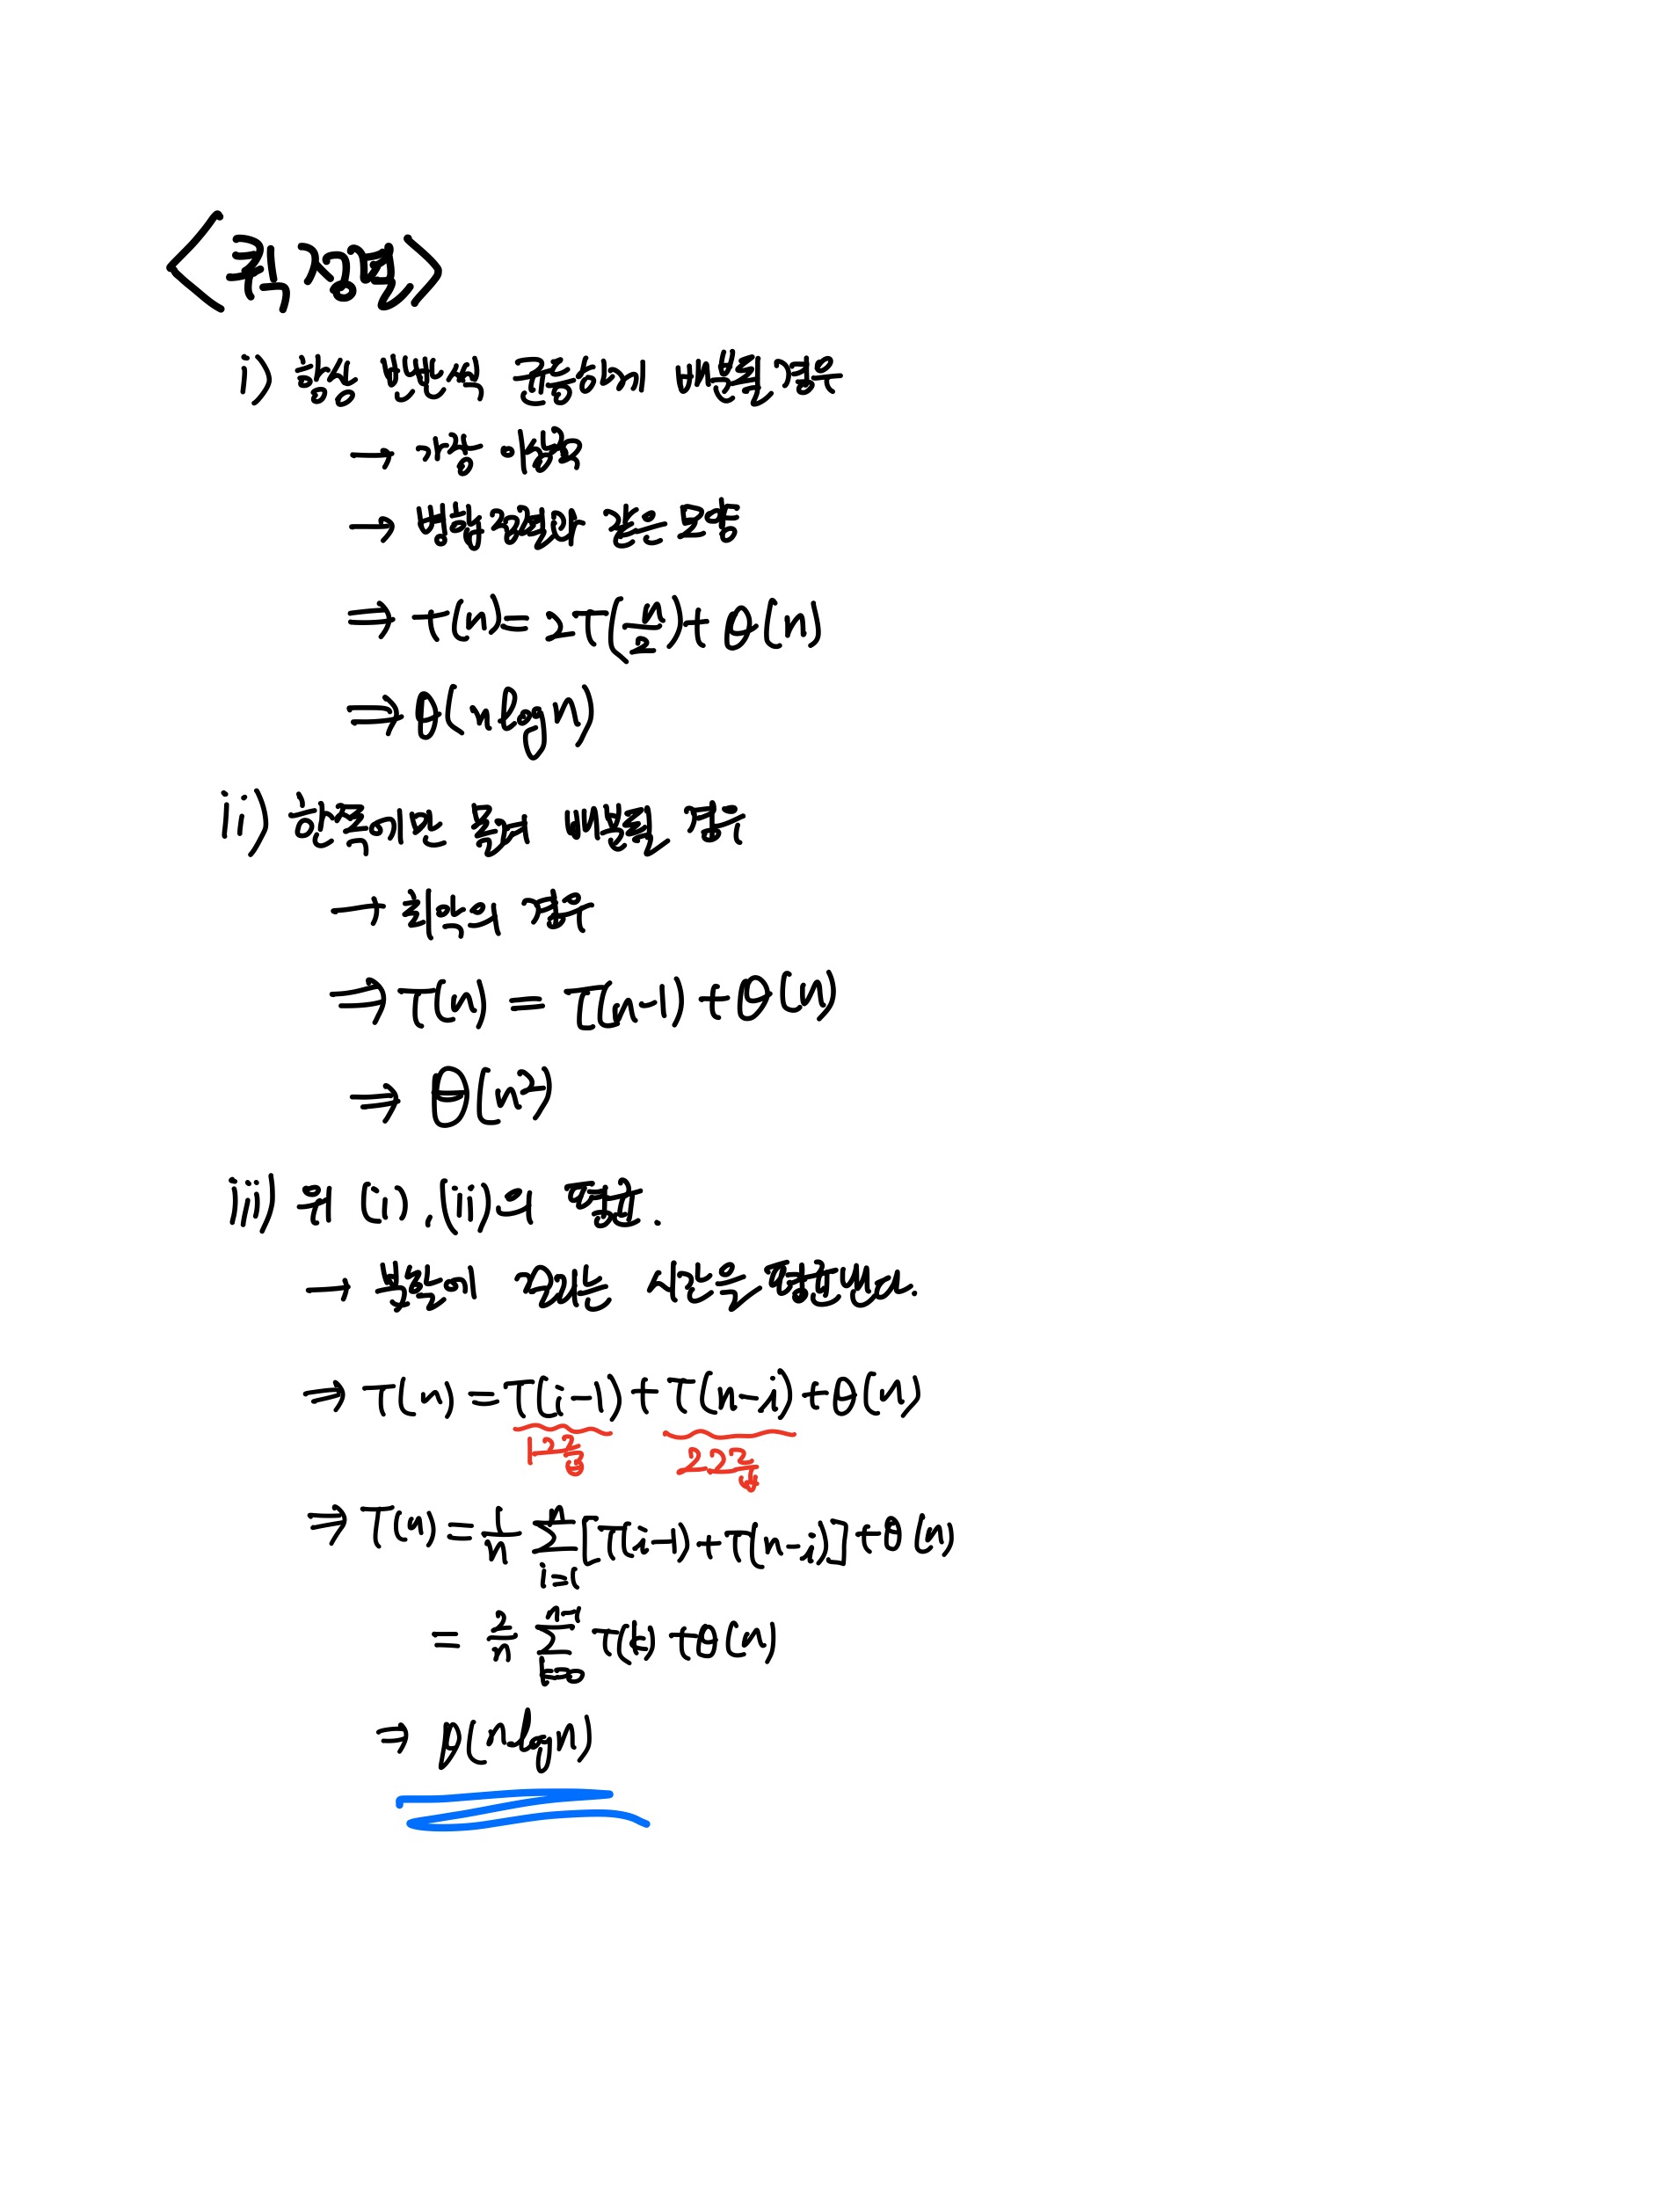 <퀵 정렬>
i) 항상 반반씩 균등하게 배분될 경우
→ 가장 이상적
→ 병합 정렬과 같은 모양
⇒ T(n) = 2T(n/2) + θ(n)
⇒ θ(nlogn)
ii) 한쪽에만 몰려 배분될 경우
→ 최악의 경우
⇒ T(n) = T(n-1) + θ(n)
⇒ θ(n²)
iii) 위 (i), (ii)의 평균.
→ 분할에 걸리는 시간을 평균낸다.
⇒ T(n) = T(i-1) + T(n-i) + θ(n)
⇒ T(n) = 1/n ∑_{i=1}^{n} [T(i-1) + T(n-i)] + θ(n)
= 2/n ∑_{k=0}^{n-1} T(k) + θ(n)
⇒ θ(nlogn)